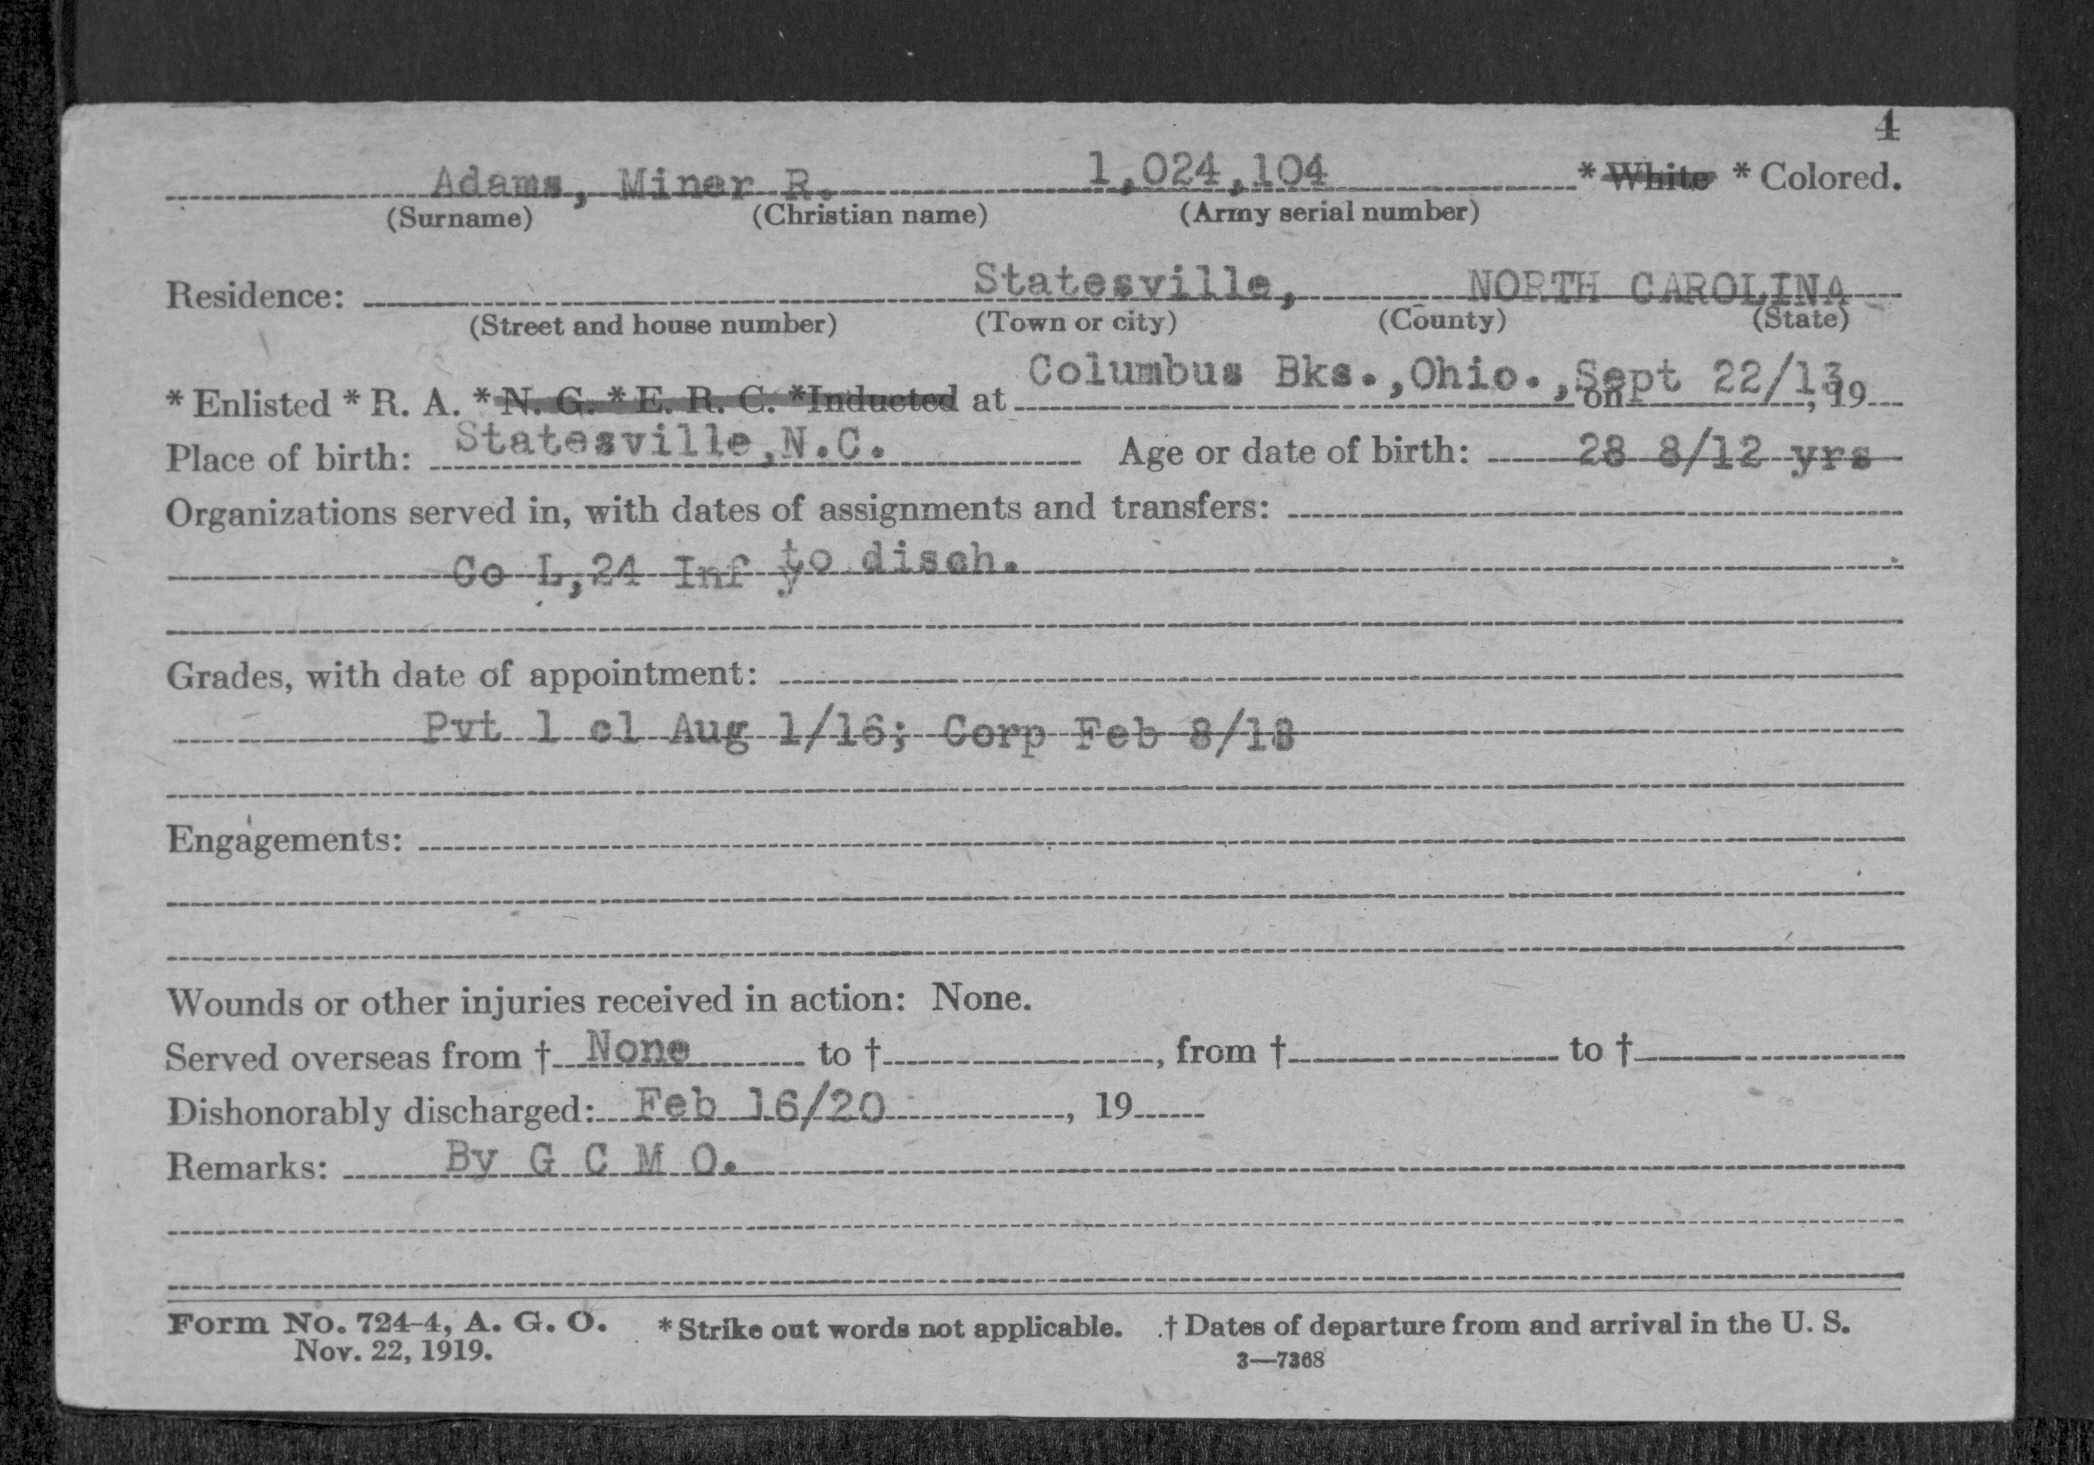 4
Adams, Miner R. 1,024,104 * White * Colored.
(Surname) (Christian name) (Army serial number)
Residence: Statesville, NORTH CAROLINA
(Street and house number) (Town or city) (County) (State)
Columbus Bks.,Ohio.,Sept 22/13
* Enlisted * R. A. * N. G. * E. R. C. *Inducted at on , 19
Place of birth: Statesville,N.C. Age or date of birth: 28 8/12 yrs
Organizations served in, with dates of assignments and transfers:
Co L,24 Inf y to disch.
Grades, with date of appointment:
Pvt 1 cl Aug 1/16; Corp Feb 8/18
Engagements:
Wounds or other injuries received in action: None.
Served overseas from † None to † , from † to †
Dishonorably discharged: Feb 16/20 , 19
Remarks: By G C M O.
Form No. 724-4, A. G. O. * Strike out words not applicable. † Dates of departure from and arrival in the U. S.
Nov. 22, 1919. 3—7368